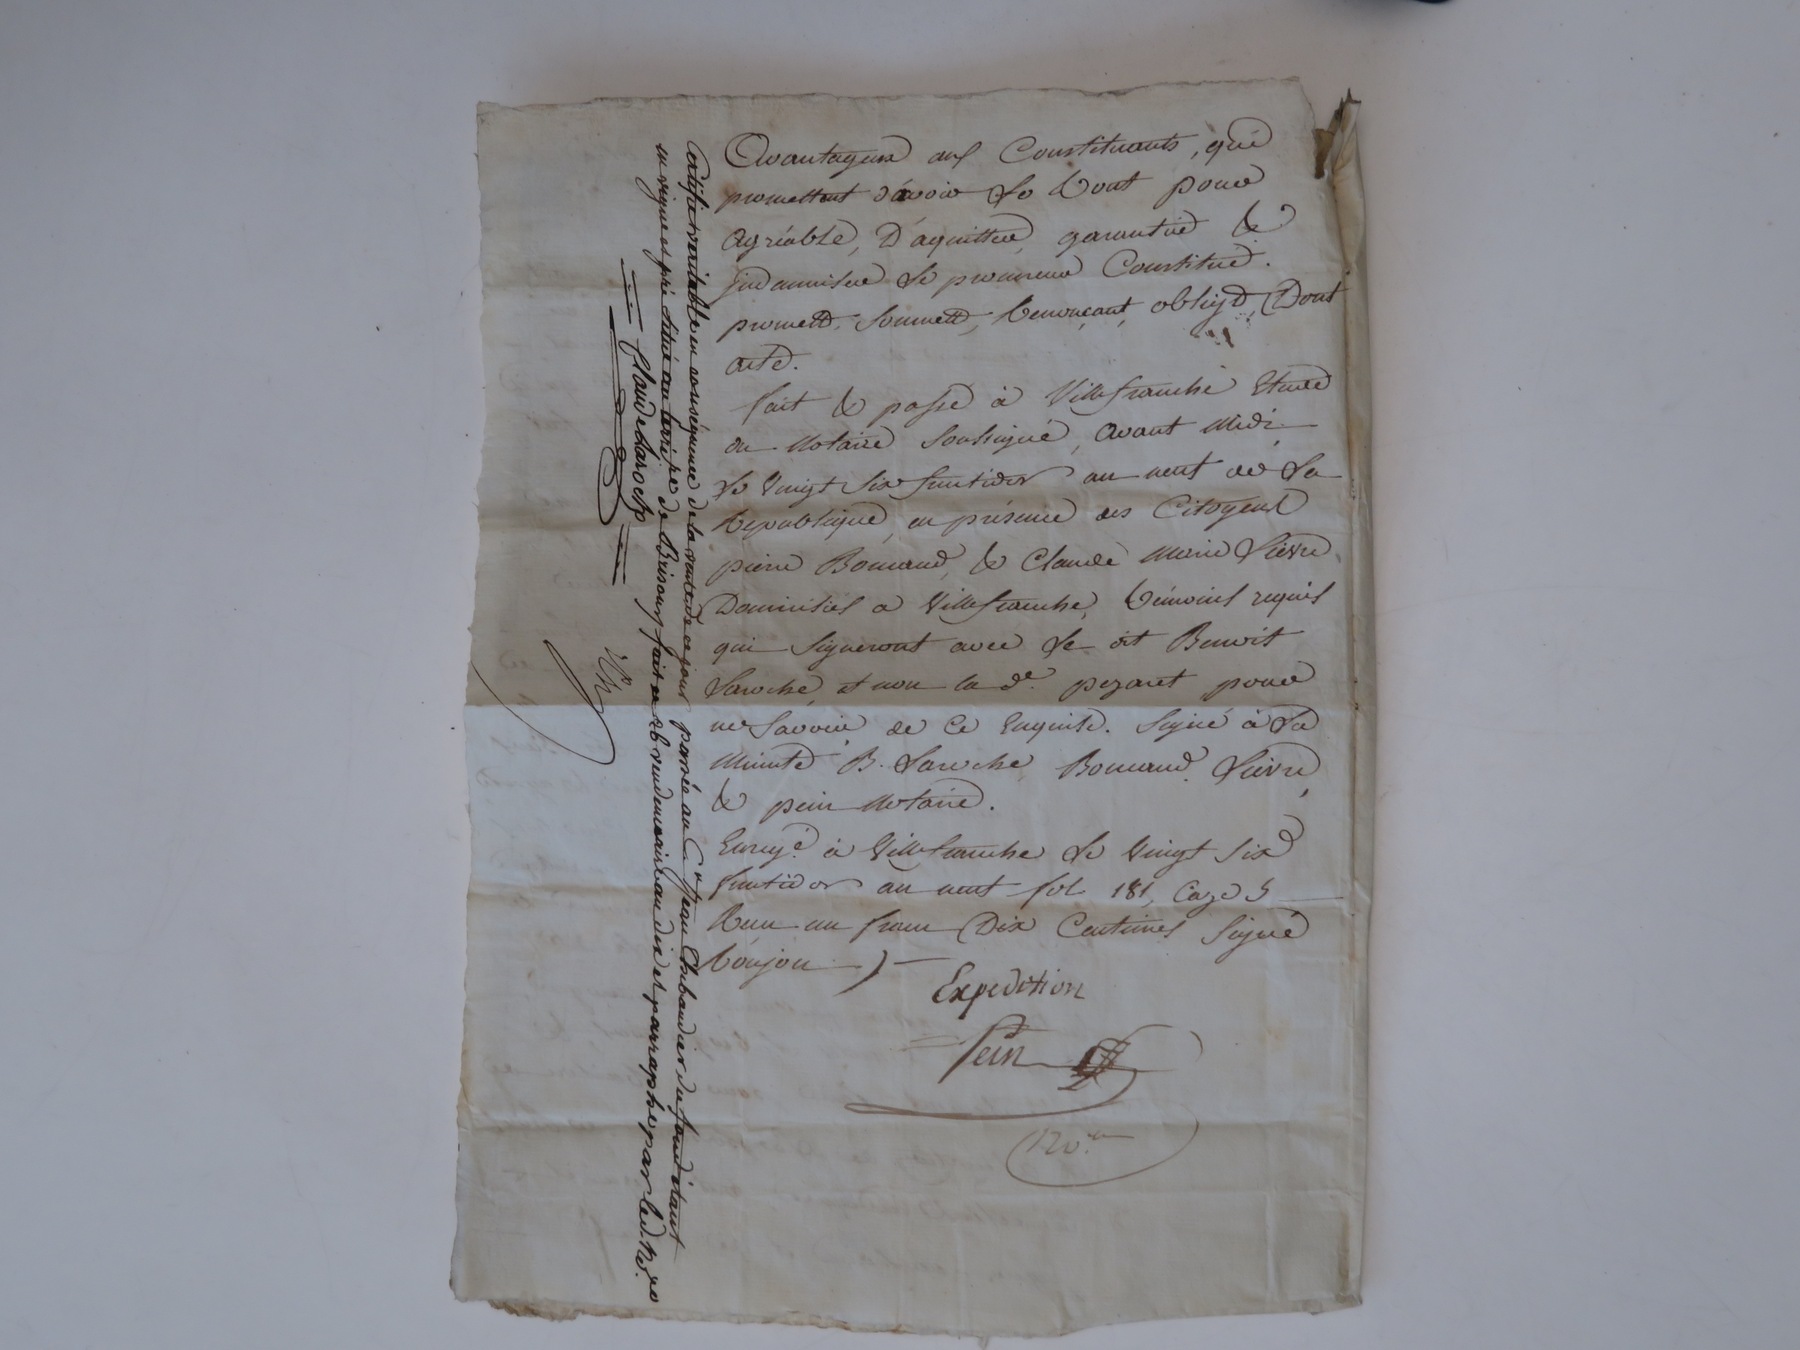 Avantageux aux Constituants, qui
promettent d'avoir le tout pour
agréable, D'aquitter, garantir &
indamniser le procureur Constitué.
promett. soumett. renonçant, obligt. Dont
acte.
fait & passé à Villefranche Etude
du Notaire soussigné, avant Midi
le vingt six fructidor an neuf de la
République, en présence des Citoyens
pierre & Claude Marie Lièvre
Domiciliés a Villefranche, témoins requis
qui signeront avec le dit Benoit
Laroche, et non la de. pezant pour
ne savoir de ce Enquise. Signé à la
Minute B. Laroche, Lièvre,
& pein Notaire.
Enregé. à Villefranche le vingt six
fructidor an neuf fol 181, Caze 5
Reçu un franc Dix Centimes signé
Expedition
Pein
Nore
Certifié véritable en conséquence de la vente de ce jour passée au Cn Jean Chabaudier du fond étant
en vigne et pré situé au terri.re de Brisour fait ce 26 vendemiaire an dix et parraphé par led. No.re
Claude Laroche